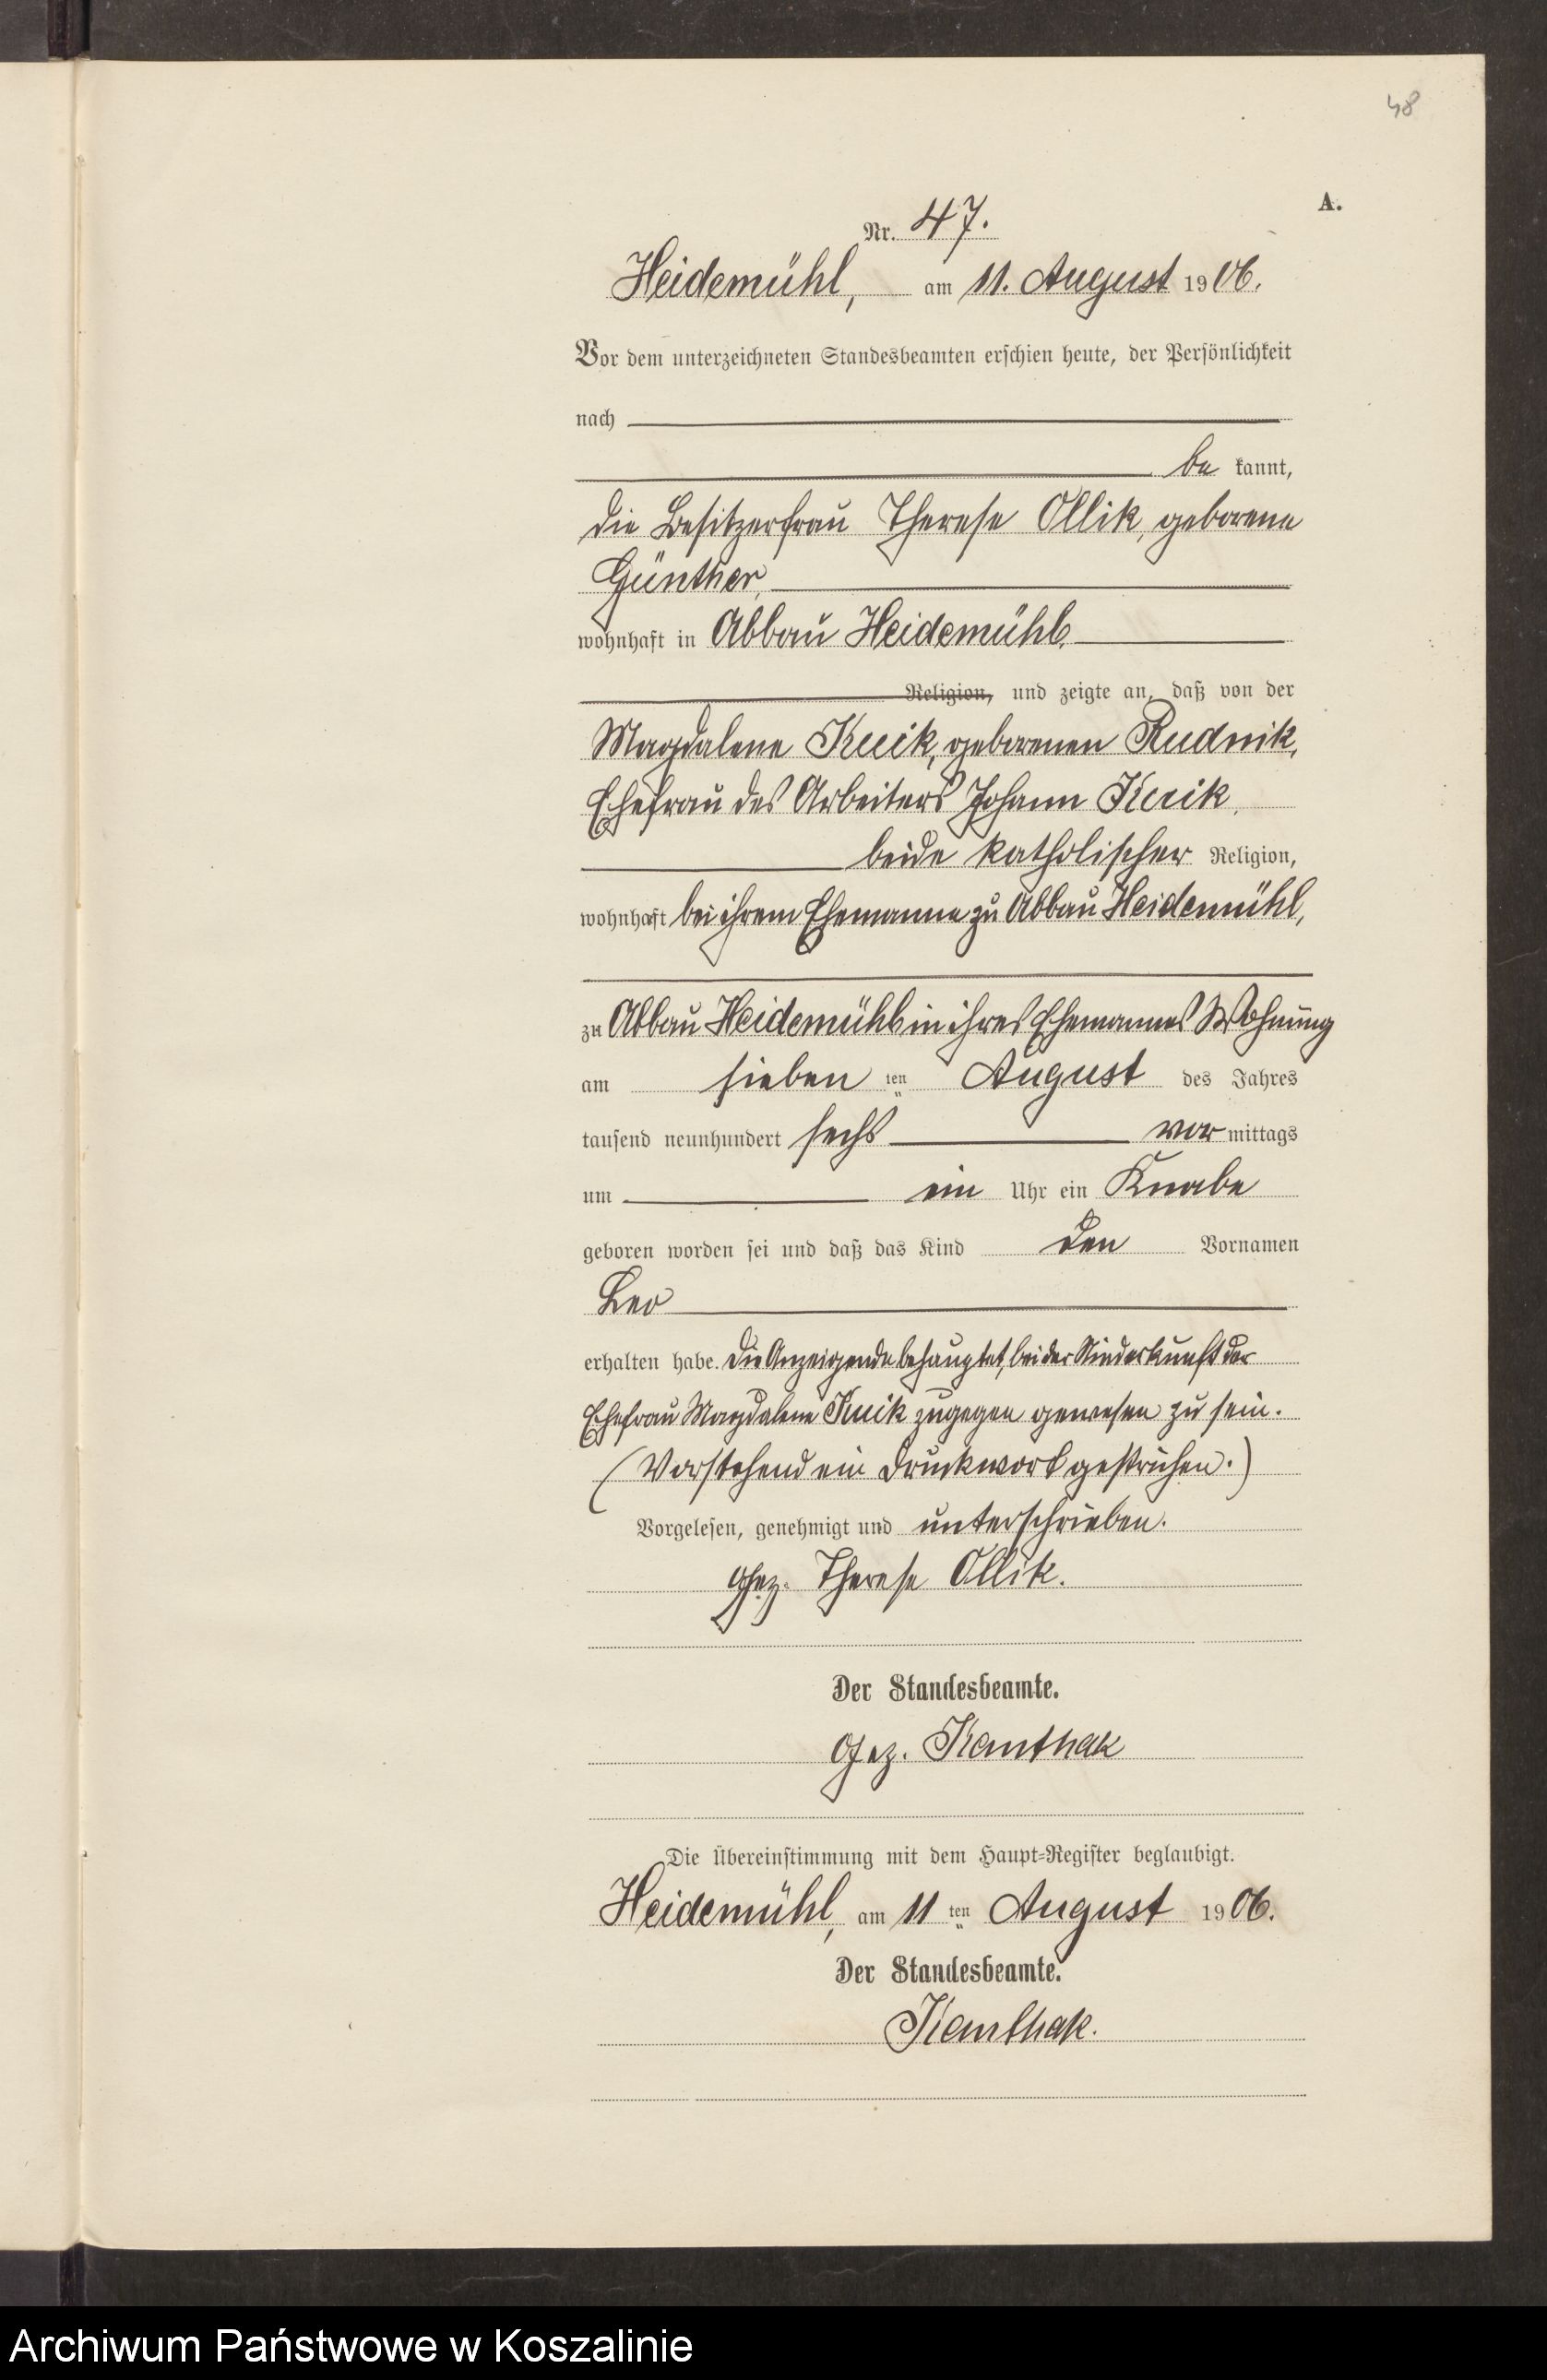 48
A.
Nr. 47.
Heidemühl, am 11. August 1906.
Vor dem unterzeichneten Standesbeamten erschien heute, der Persönlichkeit
nach
be kannt,
die Besitzerfrau Therese Ollik, geborene
Günther,
wohnhaft in Abbau Heidemühl,
Religion, und zeigte an, daß von der
Magdalene Kuik, geborenen Rudnik,
Ehefrau des Arbeiters Johann Kuik,
beide katholischer Religion,
wohnhaft bei ihrem Ehemanne zu Abbau Heidemühl,
zu Abbau Heidemühl in ihres Ehemannes Wohnung
am sieben ten August des Jahres
tausend neunhundert sechs vor mittags
um ein Uhr ein Knabe
geboren worden sei und daß das Kind den Vornamen
Leo
erhalten habe. Die Anzeigende behauptet, bei der Niederkunft der
Ehefrau Magdalene Kuik zugegen gewesen zu sein.
(Vorstehend ein Druckwort gestrichen.)
Vorgelesen, genehmigt und unterschrieben.
gez. Therese Ollik.
Der Standesbeamte.
Gez. Kanthak
Die Übereinstimmung mit dem Haupt-Register beglaubigt.
Heidemühl, am 11 ten August 1906.
Der Standesbeamte.
Kanthak.
Archiwum Państwowe w Koszalinie